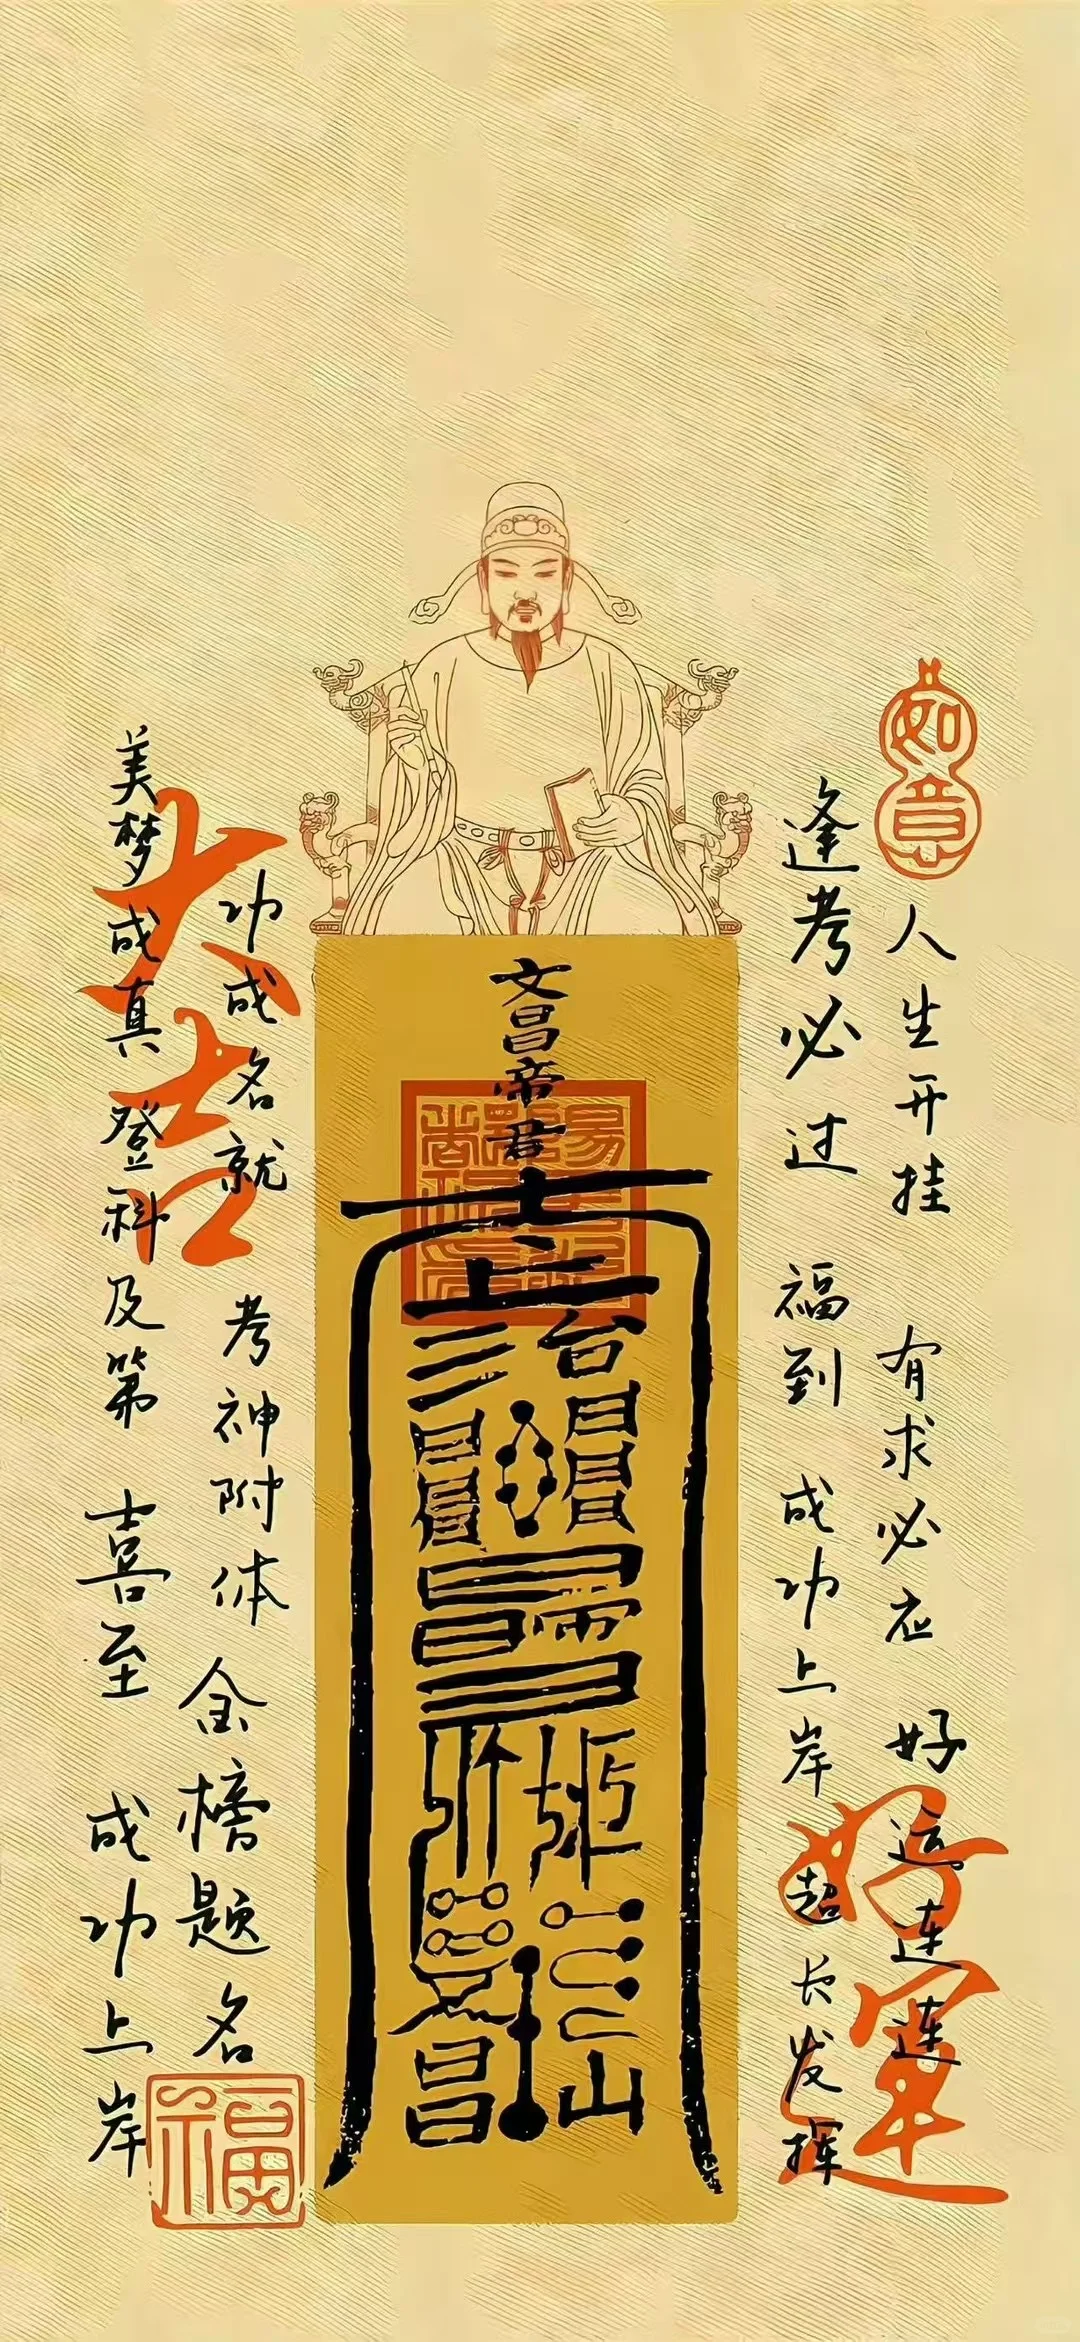 如意
人生开挂 有求必应 好运连连
好運
逢考必过 福到 成功上岸 超长发挥
文昌帝君
功成名就 考神附体 金榜题名
大吉
美梦成真 登科及第 喜至 成功上岸
福